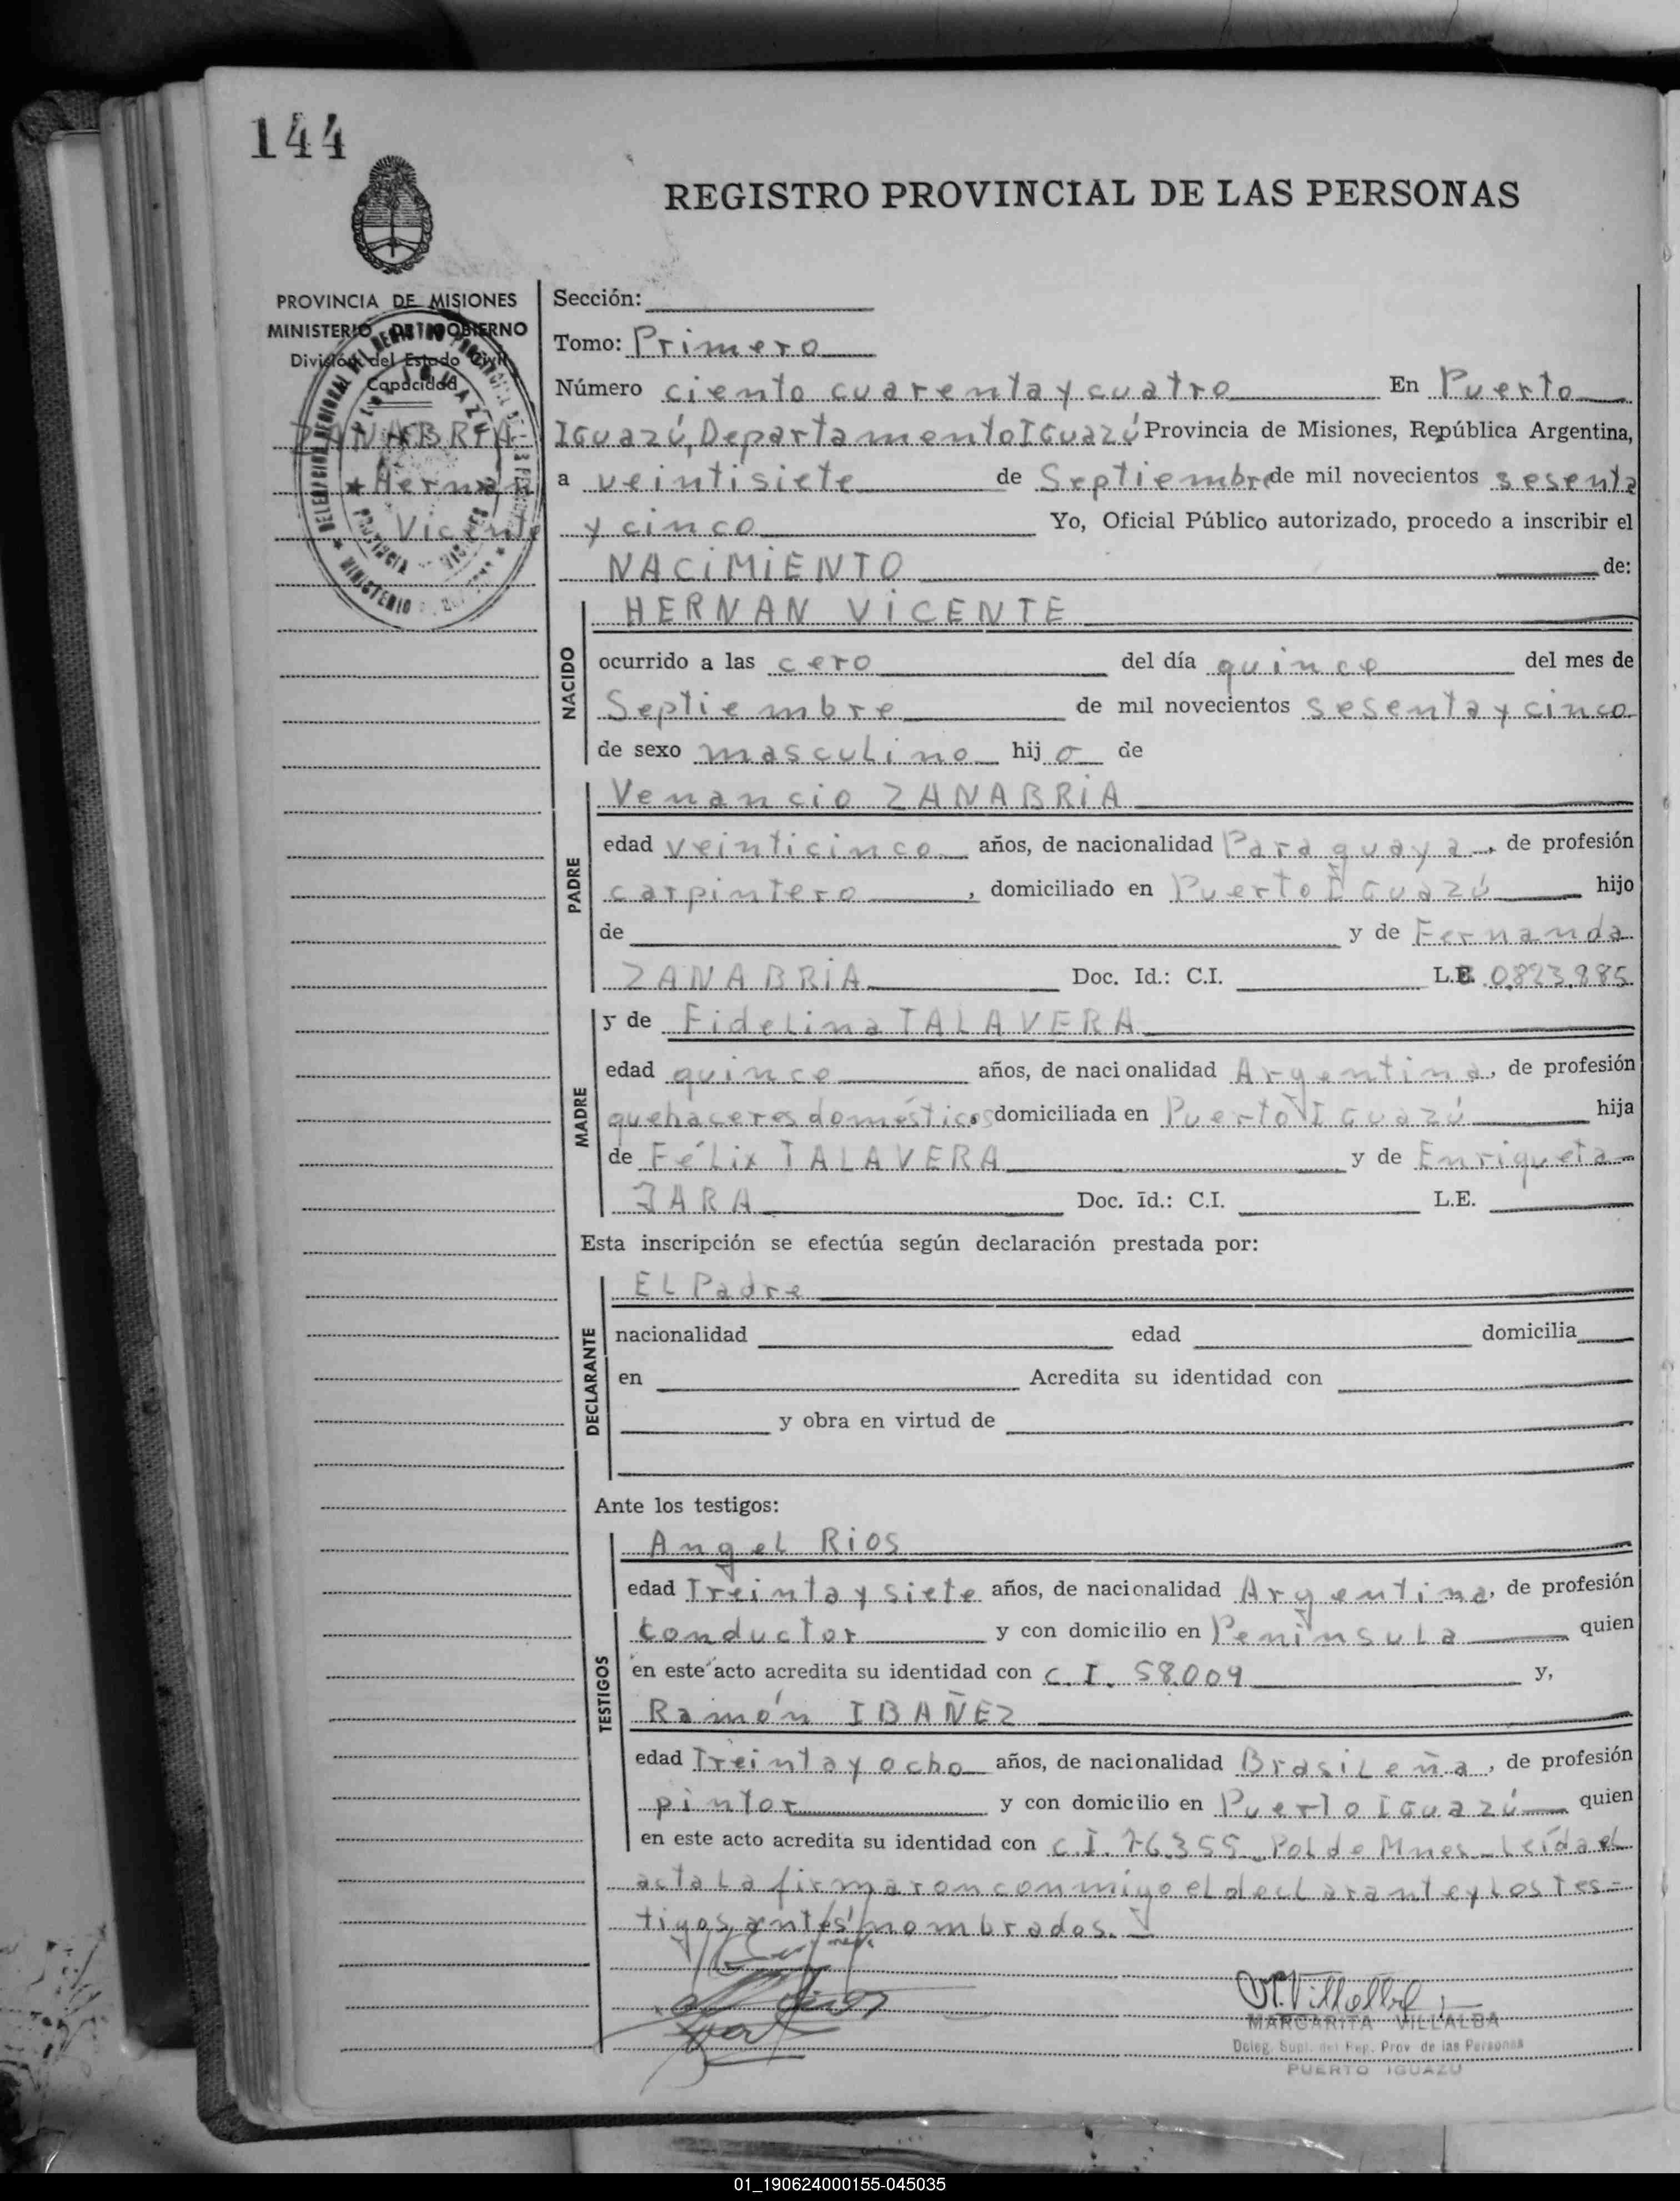 144
REGISTRO PROVINCIAL DE LAS PERSONAS
PROVINCIA DE MISIONES
MINISTERIO DE GOBIERNO
División del Estado Civil
Capacidad
ZANABRIA
Hernan
Vicente
Sección:
Tomo: Primero
Número ciento cuarenta y cuatro En Puerto
Iguazú, Departamento Iguazú Provincia de Misiones, República Argentina,
a veintisiete de Septiembre de mil novecientos sesenta
y cinco Yo, Oficial Público autorizado, procedo a inscribir el
NACIMIENTO de:
NACIDO
HERNAN VICENTE
ocurrido a las cero del día quince del mes de
Septiembre de mil novecientos sesenta y cinco
de sexo masculino hijo de
PADRE
Venancio ZANABRIA
edad veinticinco años, de nacionalidad Paraguaya, de profesión
carpintero, domiciliado en Puerto Iguazú hijo
de y de Fernanda
ZANABRIA Doc. Id.: C.I. L.E. 0.823.885
MADRE
y de Fidelina TALAVERA
edad quince años, de nacionalidad Argentina, de profesión
quehaceres domésticos domiciliada en Puerto Iguazú hija
de Félix TALAVERA y de Enriqueta
JARA Doc. Id.: C.I. L.E.
Esta inscripción se efectúa según declaración prestada por:
DECLARANTE
El Padre
nacionalidad edad domicilia
en Acredita su identidad con
y obra en virtud de
Ante los testigos:
TESTIGOS
Angel RIOS
edad Treinta y siete años, de nacionalidad Argentina, de profesión
conductor y con domicilio en Península quien
en este acto acredita su identidad con C.I. 58.009 y,
Ramón IBAÑEZ
edad Treinta y ocho años, de nacionalidad Brasileña, de profesión
pintor y con domicilio en Puerto Iguazú quien
en este acto acredita su identidad con C.I. 76.355 Pol de Mnes_ Leída el
acta la firmaron conmigo el declarante y los tes=
tigos antes nombrados._
M. Villalba
MARGARITA VILLALBA
Deleg. Supl. del Reg. Prov de las Personas
PUERTO IGUAZU
01_190624000155-045035